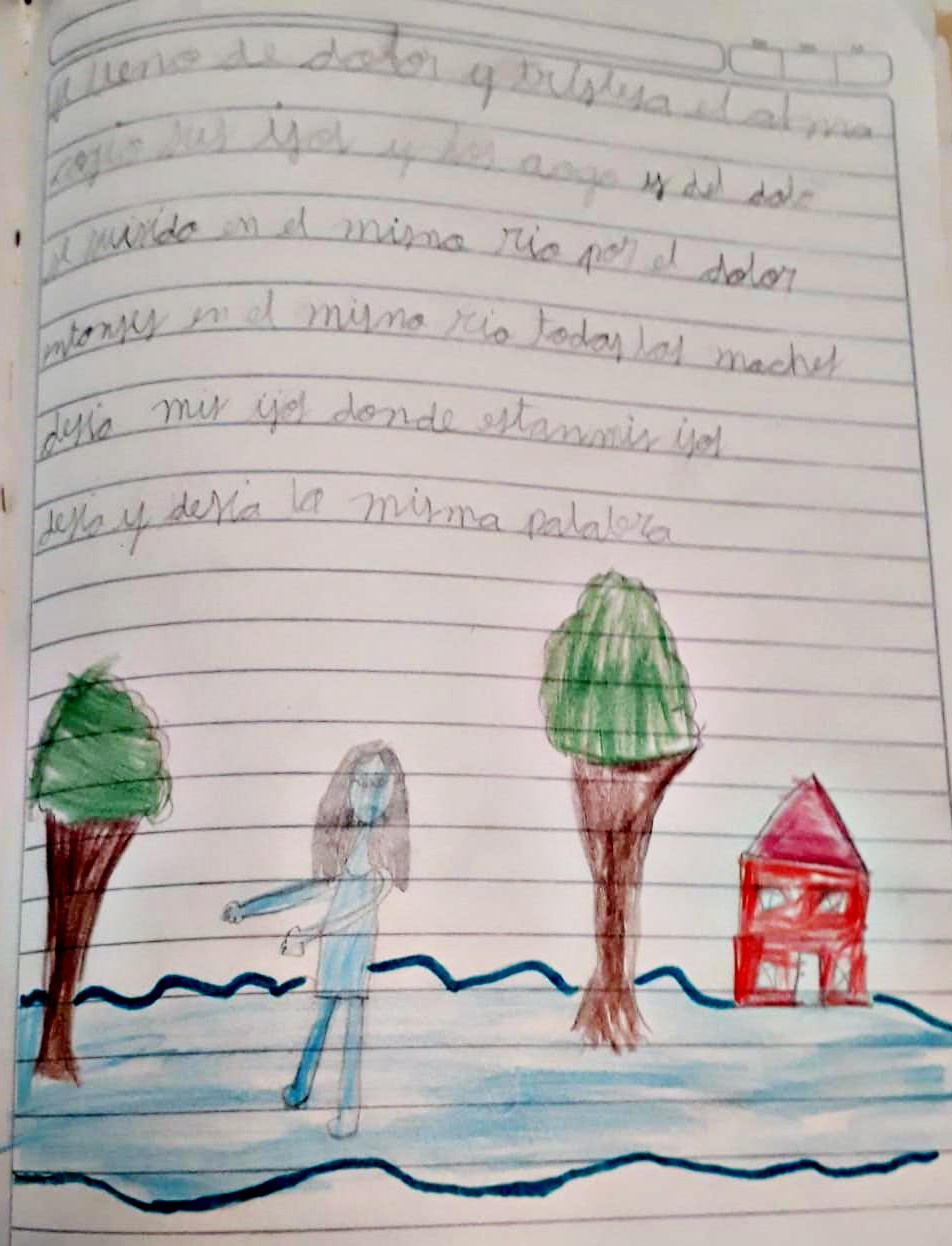 lleno de dolor y tristesa el alma
cogio sus ijos y los aogo y del dolo
el murido en el mismo rio por el dolor
entonses en el mismo rio todas las noches
desia mis ijos donde estan mis ijos
desia y desia la misma palabra